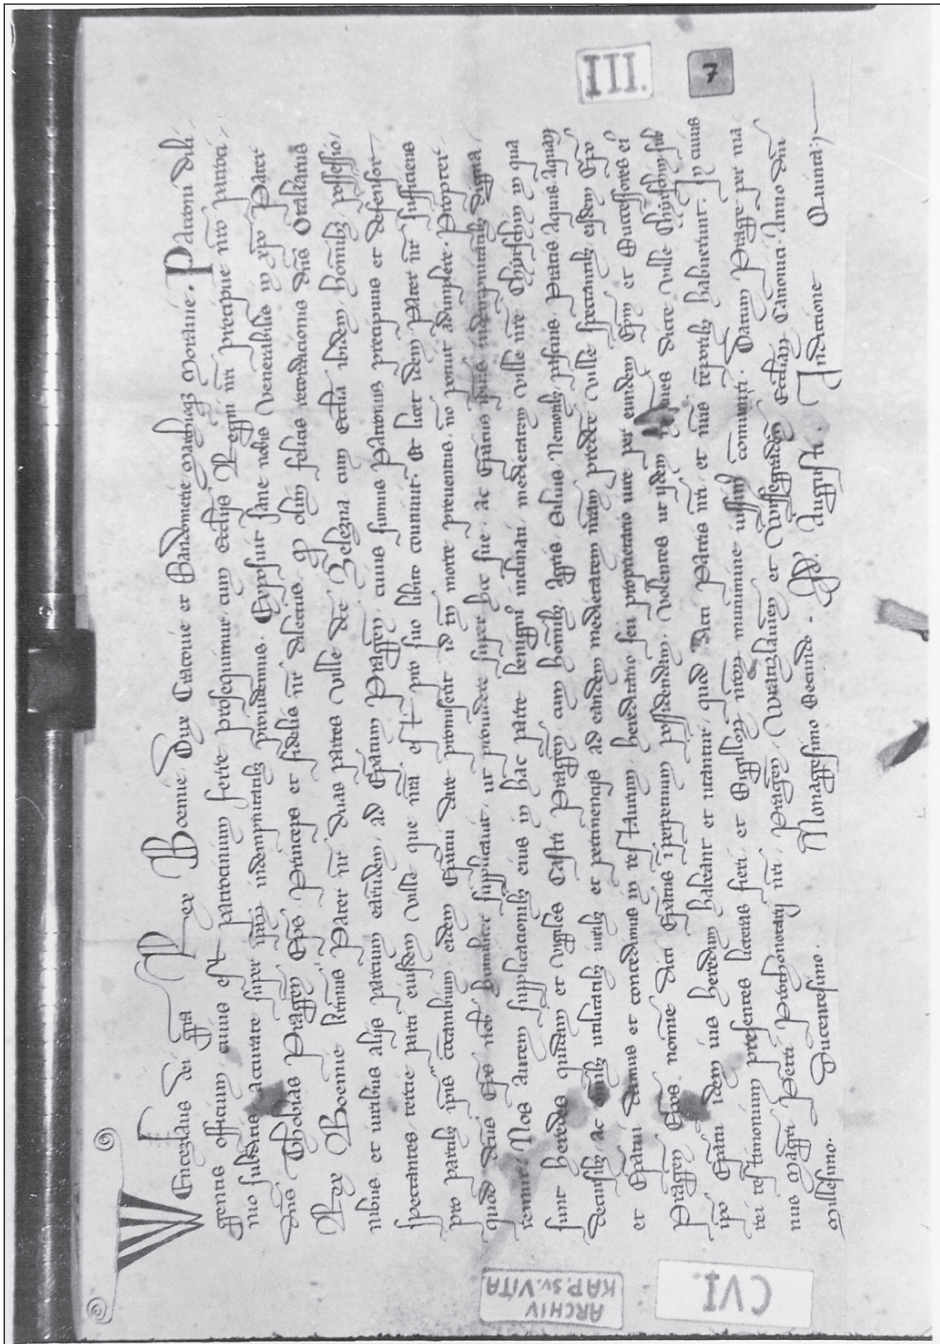 III.
7
Wenceslaus dei gra Rex Boemie Dux Cracouie et Sandomerie Marchioqz Morauie. Patroni dili
gentius officium cuius est patrocinium ferre prosequimur cum ecclijs Regni nri precipue nro patroci
nio subditis accurate super ipsarum indempnitatibz prouidemus. Exposuit sane nobis venerabilis in xpo Pater
dns Thobias Pragen Eps Princeps et fidelis nr dilectus, qd olim felicis recordacionis dns Otakarus
Rex Boemie Pater nr duas partes ville dce Zelezna cum Ecclia ibidem, hominibz possessio
nibus et iuribus alijs partium earundem, ad Epatum Pragen, cuius sumus Patronus precipuus et defensor
spectantes, tercie parti eiusdem ville que nra est pro suo libro couniuit. Et licet idem Pater nr sufficiens
pro partibz ipis cocambium eidem Epatui dare promiserit id tn morte preuentus, no potuit adimplere. Propter
quod dcus Eps nob humiliter supplicauit, ut prouidere super hoc sue, ac Epatus ipius indempnitatibz
Nos autem supplicacionibz eius in hac parte benigni inclinati medietatem ville nre in qua
sunt heredes quidam et vigiles Castri Pragen, cum hominibz Agris Siluis Nemoribz pascuis Pratis Aquis
decursibz ac omibz utilitatibz iuribz et pertinencijs ad eandem medietatem nram predce ville spectantibz eidem Epo
et Epatui damus et concedimus in restaurum, hereditario seu proprietario iure per eundem Epm et Successores ei
Pragen Epos, nomine dicti Epatus inperpetuum possidendam, volentes ut ijdem dicte ville
ipi Epatui idem ius heredum habeant et utantur, quod dicti Patris nri et nris temporibz habuerunt. In cuius
rei testimonium presentes litteras fieri, et Sigillorum nrorum munimine iussimus comuniri. Datum Prage per ma
nus Magri Petri Prothonotarij nri, Pragen, Wratislauien et Wissegraden Eccliarum Canonici. Anno dni
Millesimo. Ducentesimo. Nonagesimo Secundo. Augusti. Indictione Quinta
ARCHIV
KAP. SV. VÍTA
CVI.